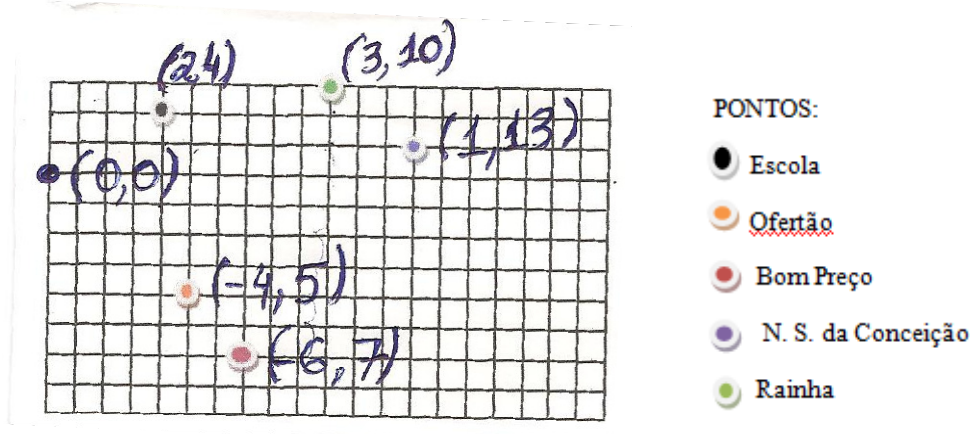 (2,4)
(3,10)
(1,13)
(0,0)
(-4,5)
(-6,7)
PONTOS:
Escola
Ofertão
Bom Preço
N. S. da Conceição
Rainha